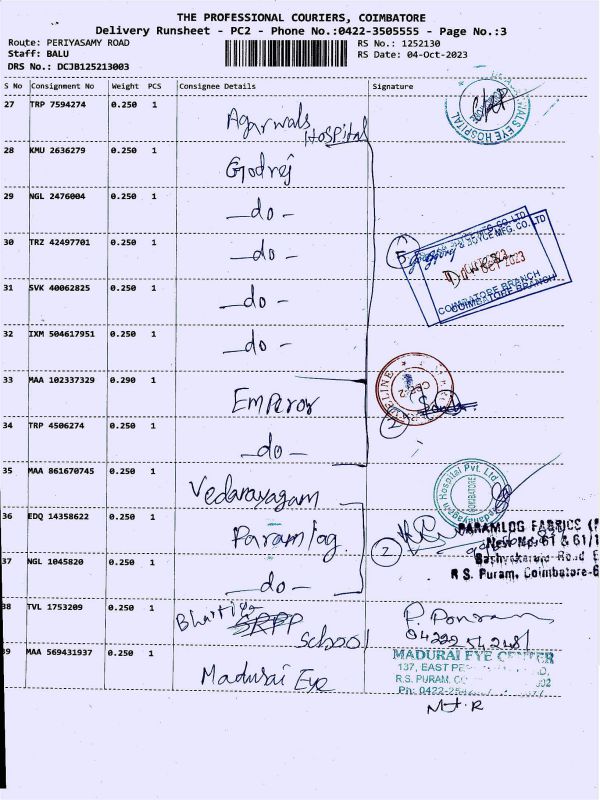 THE PROFESSIONAL COURIERS, COIMBATORE
Delivery Runsheet - PC2 - Phone No.:0422-3505555 - Page No.:3
Route: PERIYASAMY ROAD
RS No.: 1252130
Staff: BALU
RS Date: 04-Oct-2023
DRS No.: DCJB125213003
S No Consignment No Weight PCS Consignee Details Signature
27 TRP 7594274 0.250 1 Agarwals Hospital
EYE HOSPITAL
28 KMU 2636279 0.250 1 Godrej
29 NGL 2476004 0.250 1 -do-
30 TRZ 42497701 0.250 1 -do-
5
& BOYCE MFG. CO. LTD
OCT 2023
COIMBATORE BRANCH
31 SVK 40062825 0.250 1 -do-
32 IXM 504617951 0.250 1 -do-
33 MAA 102337329 0.290 1 Emperor
34 TRP 4506274 0.250 1 -do-
2
35 MAA 861670745 0.250 1 Vedanayagam
Hospital Pvt. Ltd
COIMBATORE
36 EDQ 14358622 0.250 1 Paramlog
2
PARAMLOG FABRICS
New No. 61 & 61/1
R S. Puram, Coimbatore-6
37 NGL 1045820 0.250 1 -do-
38 TVL 1753209 0.250 1 School
39 MAA 569431937 0.250 1 Madurai Eye
MADURAI EYE CENTER
137, EAST
R.S. PURAM,
Ph: 0422-